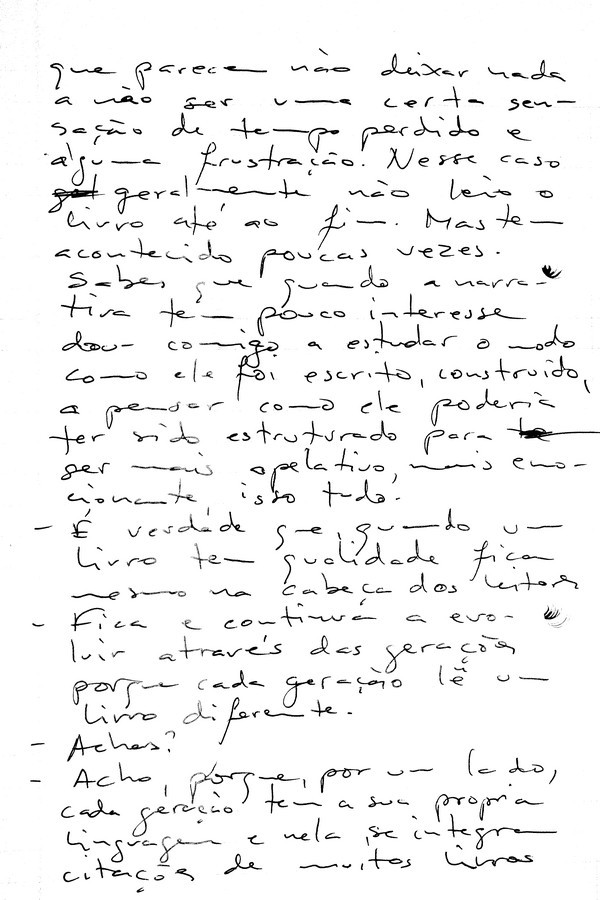 que parecem não deixar nada
a não ser uma certa sen-
sação de tempo perdido e
alguma frustração. Nesse caso
geralmente não leio o
livro até ao fim. Mas tem
acontecido poucas vezes.
Sabes que quando a narra-
tiva tem pouco interesse
dou comigo a estudar o modo
como ele foi escrito, construído,
a pensar como ele poderia
ter sido estruturado para
ser mais apelativo, mais emo-
cionante isso tudo.
- É verdade que, quando um
livro tem qualidade fica
mesmo na cabeça dos leitores
- Fica e continua a evo-
luir através das gerações
porque cada geração lê um
livro diferente.
- Achas?
- Acho, porque, por um lado,
cada geração tem a sua propria
linguagem e nela se integram
citações de muitos livros